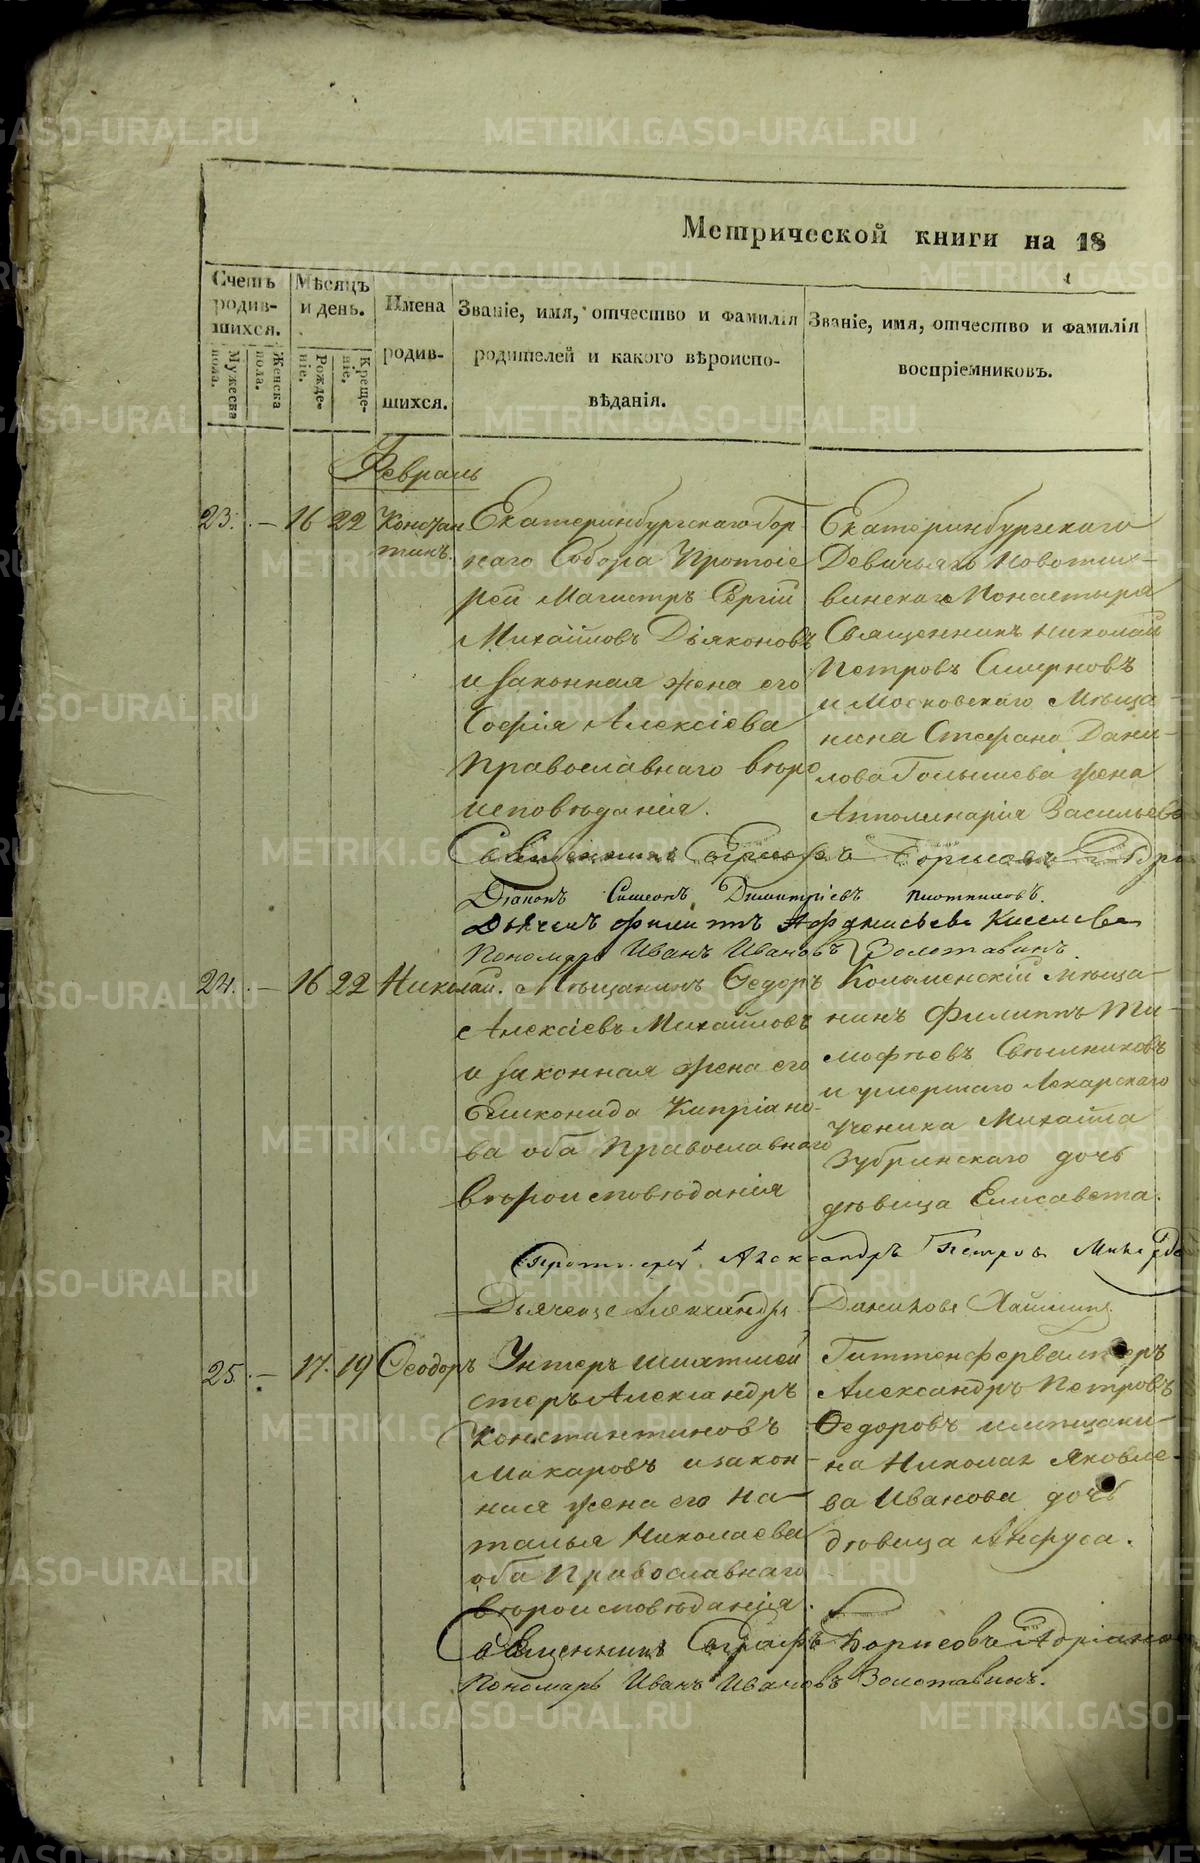 Метрической книги на 18
Счетъ родив-шихся.
Мужеска пола.
Женска пола.
Мѣсяцъ и день.
Рожде-ніе.
Креще-ніе.
Имена родив-шихся.
Званіе, имя, отчество и фамилія
родителей и какого вѣроиспо-
вѣданія.
Званіе, имя, отчество и фамилія
воспріемниковъ.
Февраль
23. — 16 22 Констан
тинъ.
Екатеринбургскаго Гор
наго Собора Протоіе
рей Магистръ Сергій
Михайловъ Дьяконовъ
и законная жена его
Софія Алексіева
Православнаго вѣро
исповѣданія.
Екатеринбургскаго
Девичьяго Новотих-
винскаго Монастыря
Священникъ Николай
Петровъ Смирновъ
и Московскаго Мѣща
нина Стефана Дани-
лова Голышева жена
Апполинарія Васильева
Священникъ Борисовъ
Діаконъ Симеонъ Димитріевъ Плотниковъ.
Дьячекъ Филиппъ Афанасьевъ Киселевъ
Пономарь Иванъ Ивановъ Золотавинъ.
24. — 16 22 Николай.
Мѣщанинъ Федоръ
Алексіевъ Михайловъ
и законная жена его
Еликонида Кипріано-
ва оба Православнаго
вѣроисповѣданія
Коломенскій мѣща-
нинъ Филиппъ Ти-
мофѣевъ
и умершаго Лекарскаго
Ученика Михаила
Зубринскаго дочь
дѣвица Елисавета.
Протоіерей Александръ Петровъ
Дьячекъ Александръ Даниловъ
25. — 17. 19 Феодоръ
Унтеръ шихтмей
стеръ Александръ
Константиновъ
Макаровъ и закон-
ная жена его На-
талья Николаева
оба Православнаго
вѣроисповѣданія.
Гиттенфервалтеръ
Александръ Петровъ
Федоровъ и мѣщани-
на Николая Яковле-
ва Иванова дочь
дѣвица Анфуса.
Священникъ Евграфъ Борисовъ
Пономарь Иванъ Ивановъ Золотавинъ.
METRIKI.GASO-URAL.RU